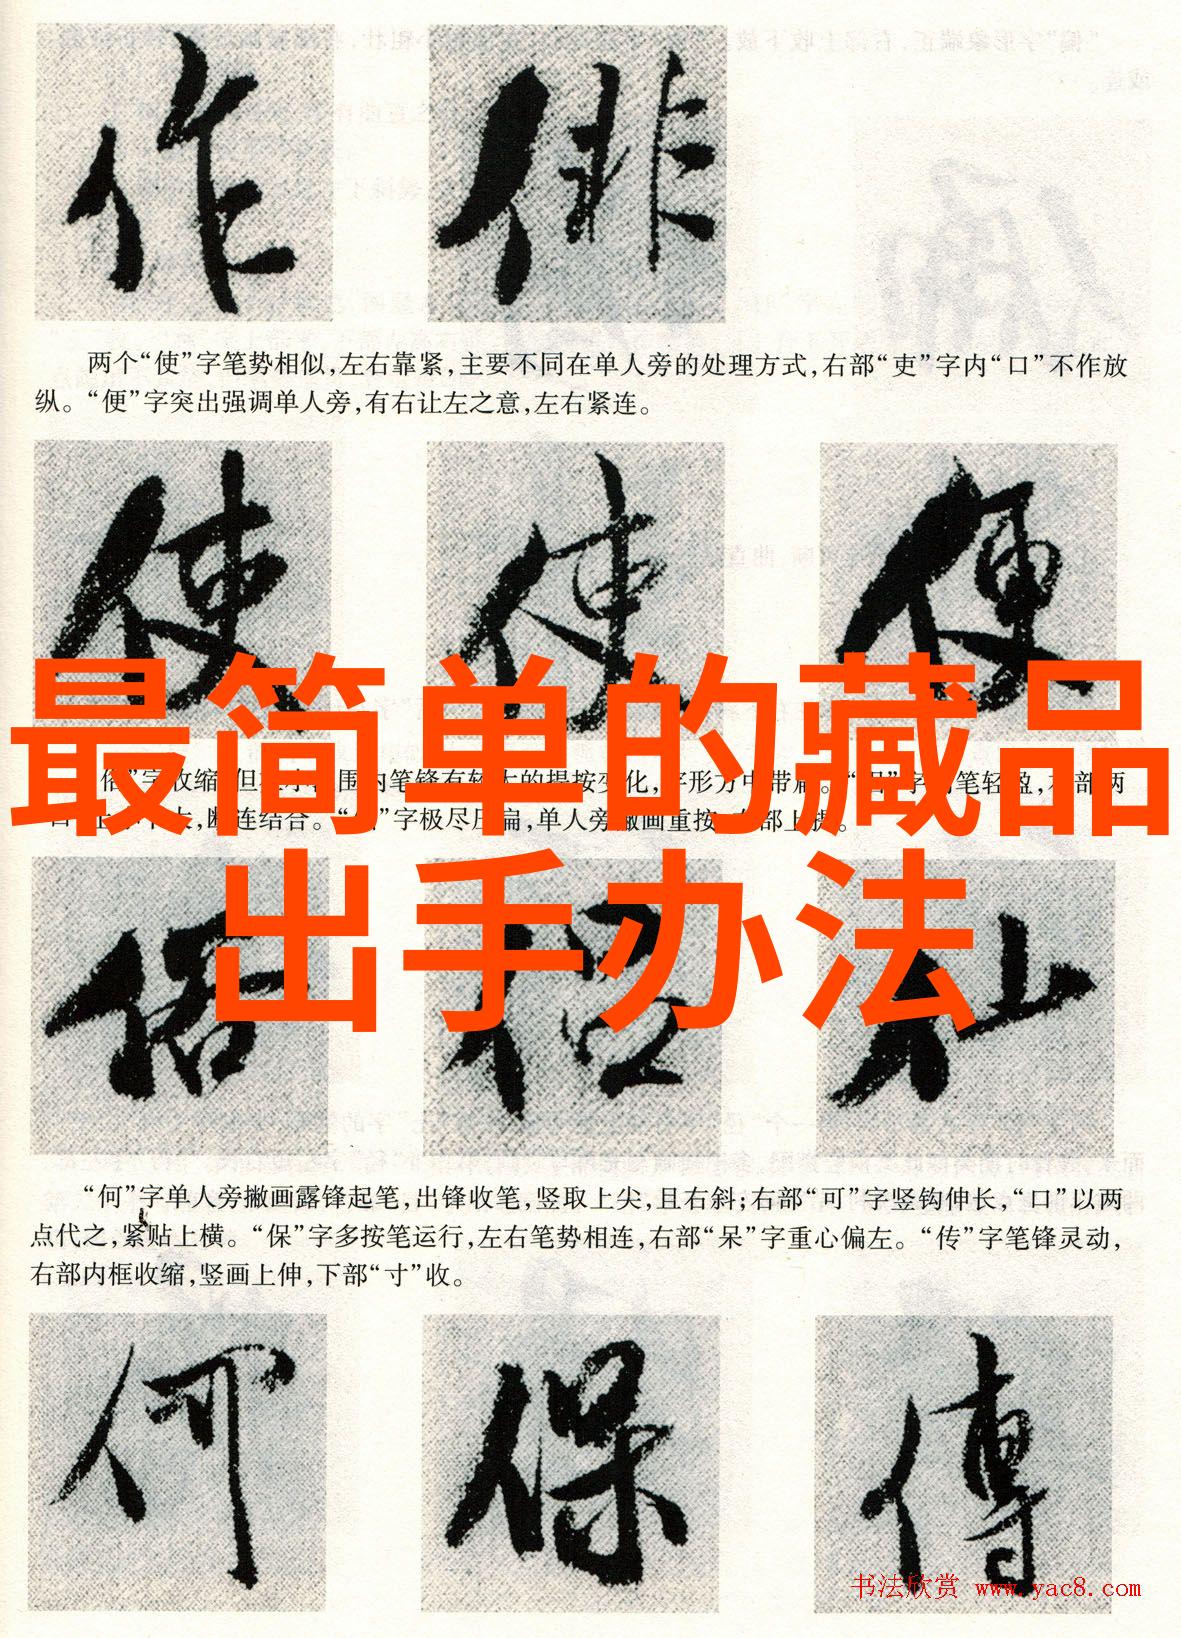 作 俳
两个“使”字笔势相似,左右靠紧,主要不同在单人旁的处理方式,右部“吏”字内“口”不作放
纵。“便”字突出强调单人旁,有右让左之意,左右紧连。
使 使 便
最简单的藏品
俗”字收缩 围内笔锋有较大的提按变化,字形方中带扁。 笔轻盈, 部两
断连结合。 字极尽压扁,单人旁撇画重按, 部上提。
出手办法
俗 侣 仙
“何”字单人旁撇画露锋起笔,出锋收笔,竖取上尖,且右斜;右部“可”字竖钩伸长,“口”以两
点代之,紧贴上横。“保”字多按笔运行,左右笔势相连,右部“呆”字重心偏左。“传”字笔锋灵动,
右部内框收缩,竖画上伸,下部“寸”收。
何 保 傳
书法欣赏 www.yac8.com